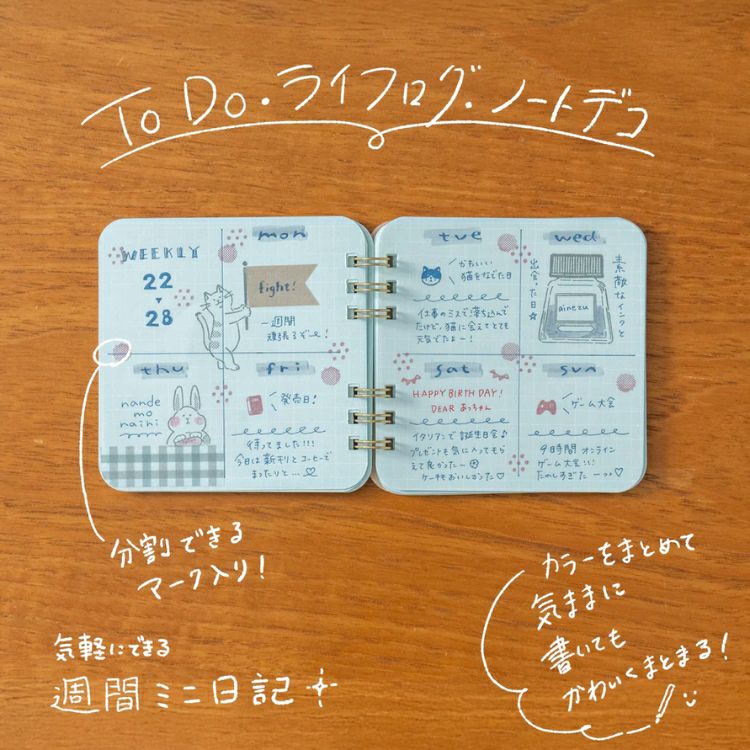 ToDo・ライフログ・ノートデコ
WEEKLY
22
28
mon
fight!
一週間
頑張るぞー!
thu
nande
mo
naihi
fri
発売日!
待ってました!!!
今日は新刊とコーヒーで
まったりと…♡
tue
かわいい
猫をなでた日
仕事のミスで落ち込んで
たけど、猫に会えてとても
元気でたよー!
wed
素敵なインクと
出会った日☆
ainezu
sat
HAPPY BIRTHDAY!
DEAR あっちゃん
イタリアンで誕生日会♪
プレゼントも気に入ってもら
えて良かったー
ケーキもおいしかった♡
sun
ゲーム大会
9時間オンライン
ゲーム大会!!!
たのしすぎたーっ♡
分割できる
マーク入り!
気軽にできる
週間ミニ日記
カラーをまとめて
気ままに
書いても
かわいくまとまる!